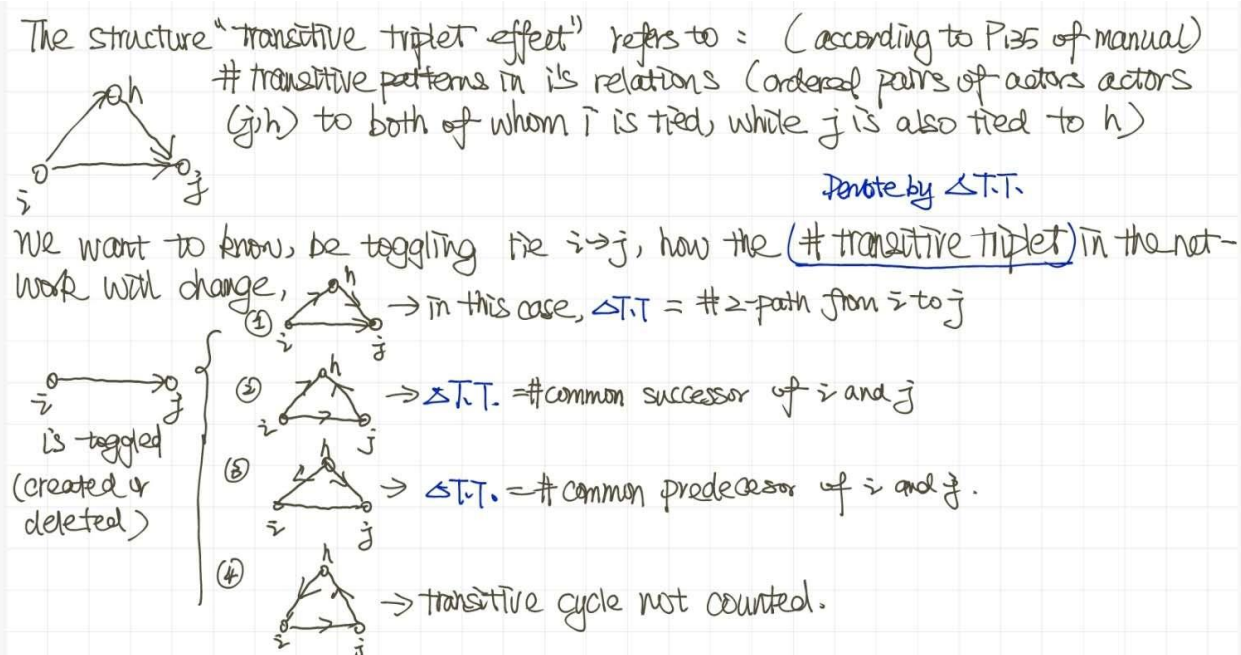 The structure "transitive triplet effect" refers to : (according to P135 of manual)
# transitive patterns in i's relations (ordered pairs of actors actors
(j,h) to both of whom i is tied, while j is also tied to h)
h
i
j
Denote by △T.T.
We want to know, be toggling tie i→j, how the (# transitive triplet) in the net-
work will change,
① h i j → in this case, △T.T = #2-path from i to j
② h i j → △T.T. = #common successor of i and j
i j
is toggled
(created or
deleted)
③ h i j → △T.T. = # common predecesor of i and j.
④ h i j → transitive cycle not counted.